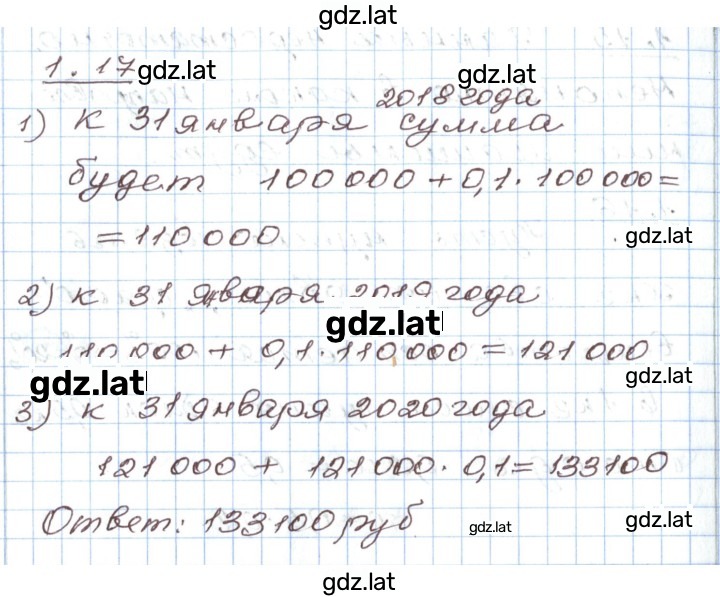 gdz.lat
1.17 gdz.lat
gdz.lat
2018 года
1) К 31 января сумма
будет 100 000 + 0,1 · 100 000 =
= 110 000
gdz.lat
2) К 31 января 2019 года
gdz.lat
110 000 + 0,1 · 110 000 = 121 000
gdz.lat
gdz.lat
3) К 31 января 2020 года
121 000 + 121 000 · 0,1 = 133100
Ответ: 133100 руб
gdz.lat
gdz.lat
gdz.lat